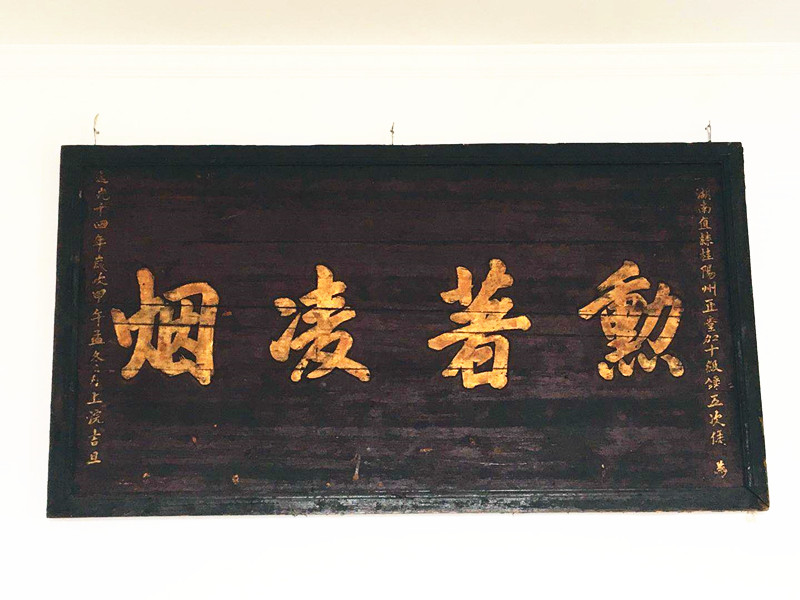 湖南直隸桂陽州正堂加十級錄五次侯 為
勳著凌烟
道光十四年歲次甲午孟冬月上浣吉旦